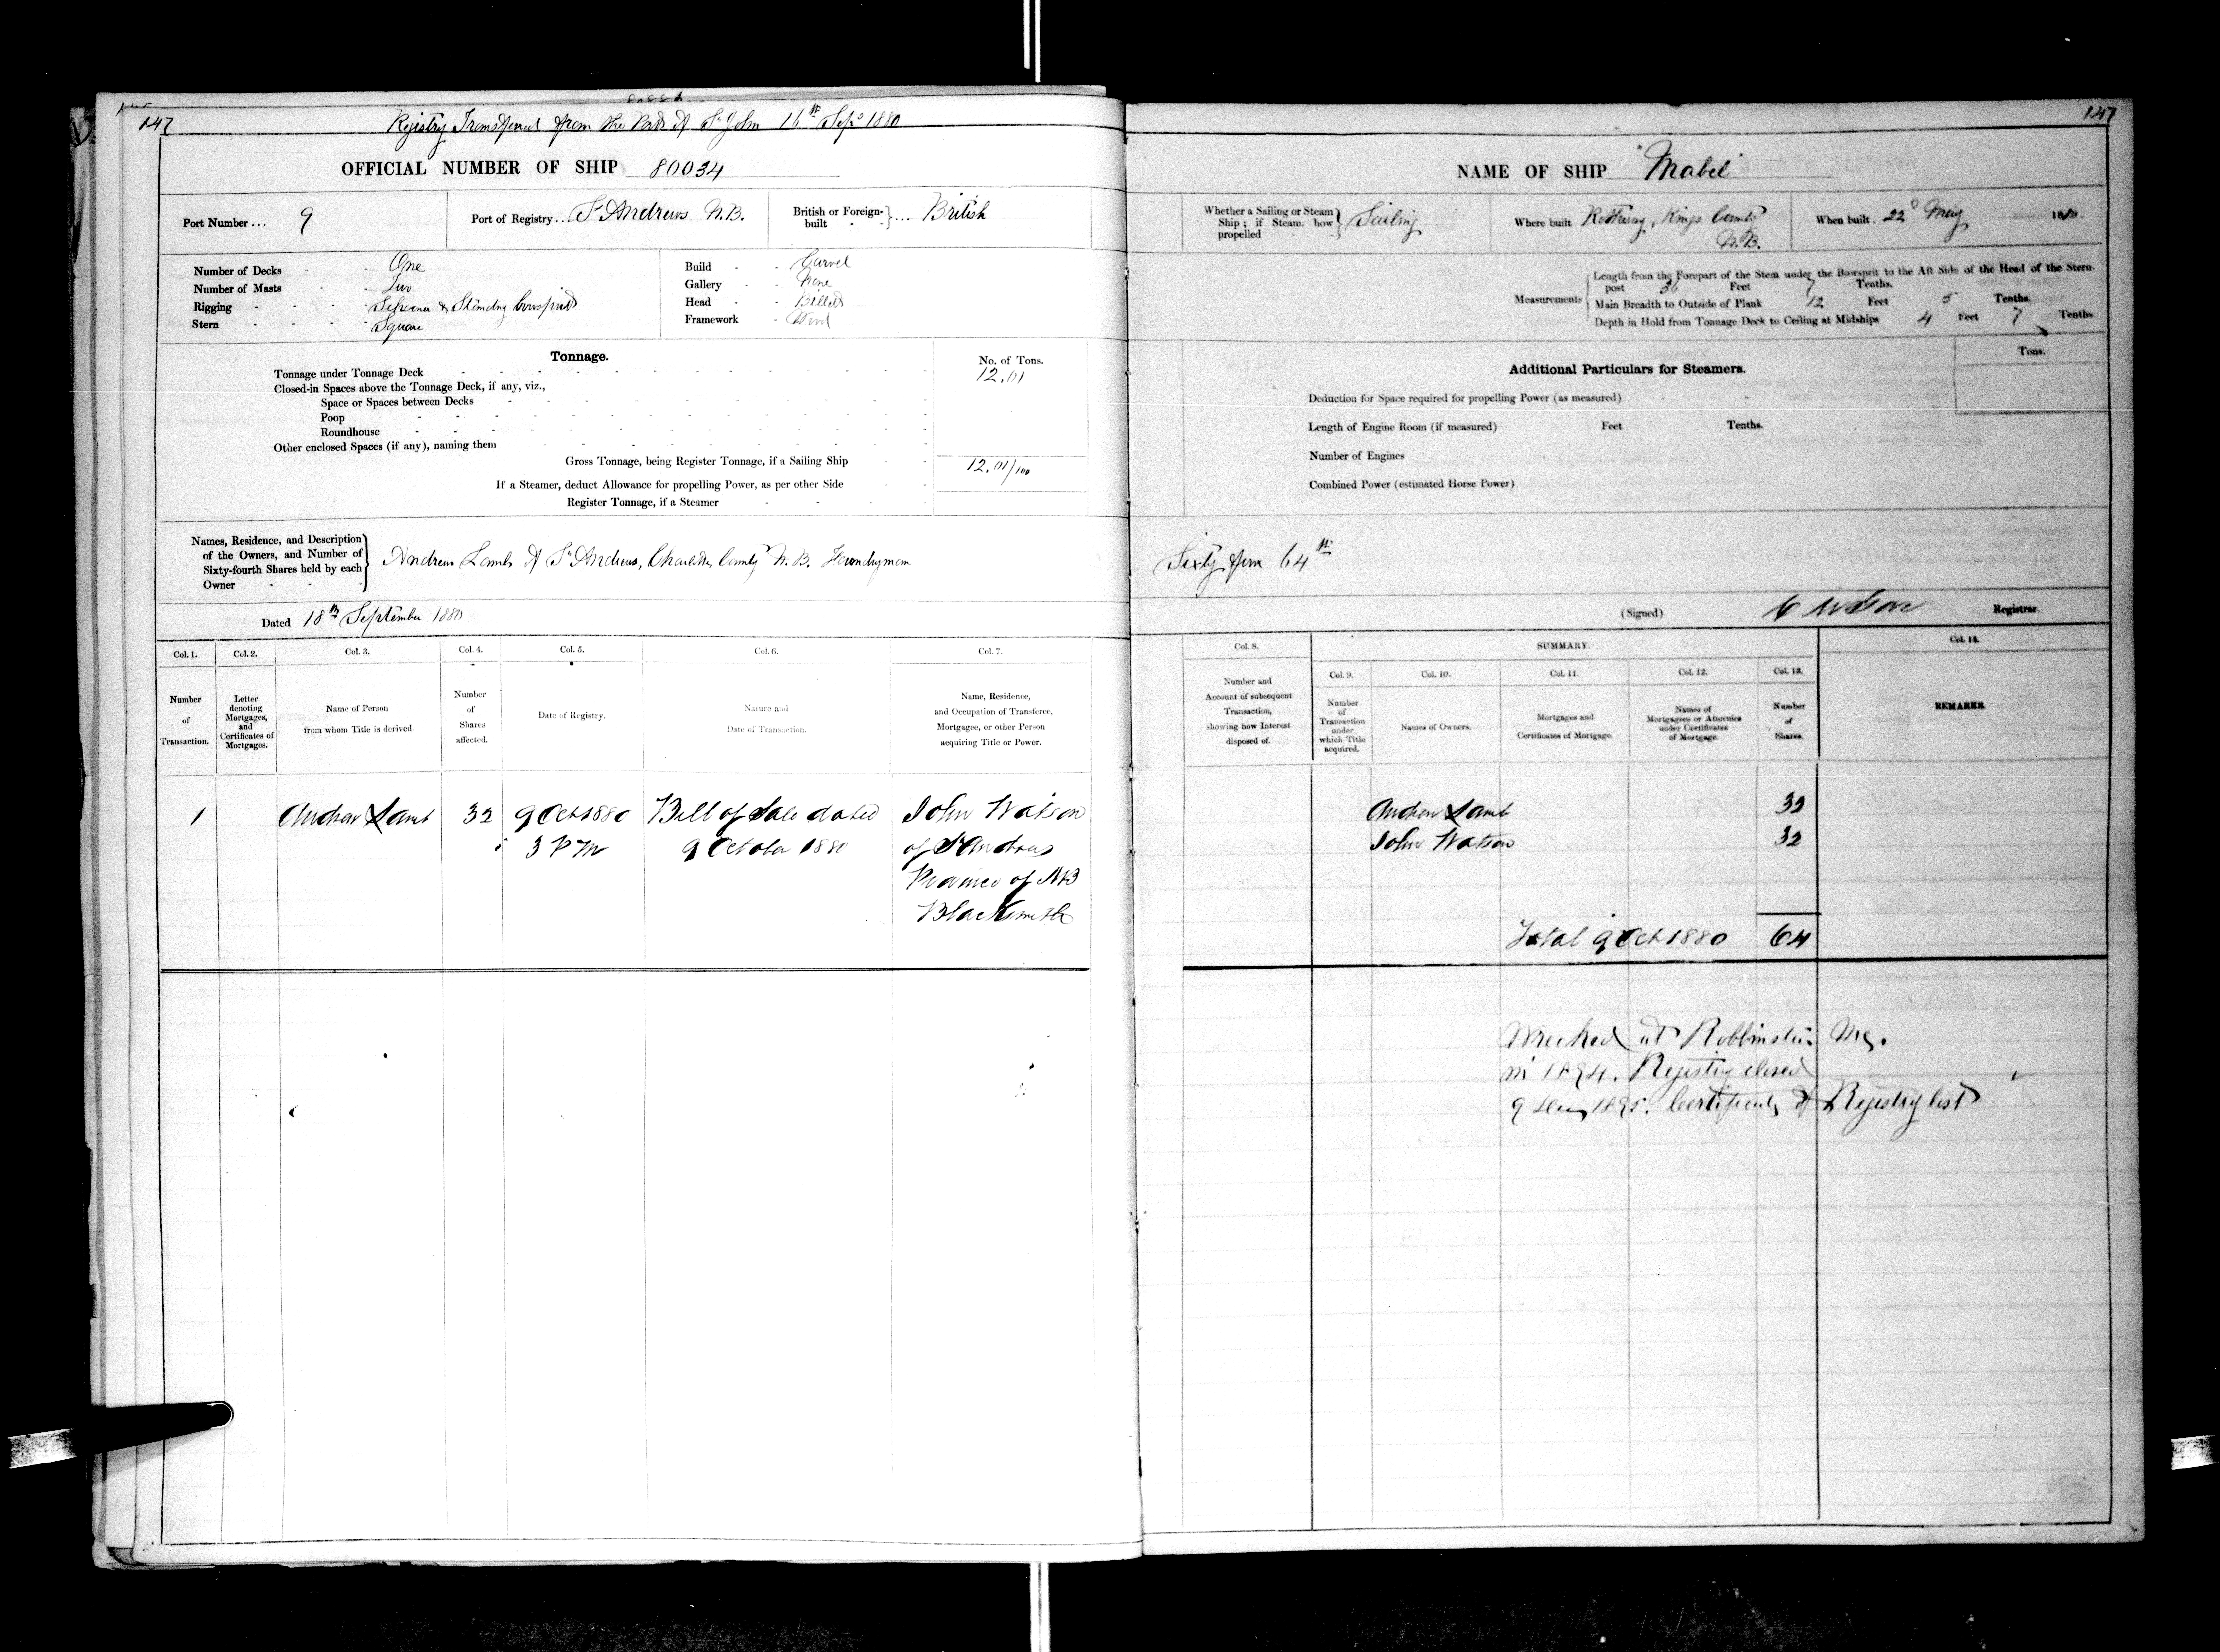 147
Registry Transferred from the Port of St John 16th Sept 1880
OFFICIAL NUMBER OF SHIP 80034
Port Number ... 9
Port of Registry ... St Andrews N.B.
British or Foreign-built } ... British
Number of Decks - - One
Number of Masts - - Two
Rigging - - - Schooner & Standing bowsprit
Stern - - - - Square
Build - - Carvel
Gallery - - None
Head - - Billet
Framework - Wood
Tonnage.
No. of Tons.
Tonnage under Tonnage Deck 12.01
Closed-in Spaces above the Tonnage Deck, if any, viz.,
Space or Spaces between Decks
Poop
Roundhouse
Other enclosed Spaces (if any), naming them
Gross Tonnage, being Register Tonnage, if a Sailing Ship 12.01/100
If a Steamer, deduct Allowance for propelling Power, as per other Side
Register Tonnage, if a Steamer
Names, Residence, and Description
of the Owners, and Number of
Sixty-fourth Shares held by each
Owner
Andrew Lamb of St Andrews, Charlotte County N.B. Foundryman
Dated 18th September 1880
Col. 1. Col. 2. Col. 3. Col. 4. Col. 5. Col. 6. Col. 7.
Number of Transaction.
Letter denoting Mortgages, and Certificates of Mortgages.
Name of Person from whom Title is derived
Number of Shares affected.
Date of Registry.
Nature and Date of Transaction.
Name, Residence, and Occupation of Transferee, Mortgagee, or other Person acquiring Title or Power.
1 Andrew Lamb 32 9 Oct 1880 Bill of Sale dated John Watson
3 PM 9 October 1880 of St Andrews
Province of NB
Blacksmith
147
NAME OF SHIP "Mabel"
Whether a Sailing or Steam Ship; if Steam, how propelled } Sailing
Where built Rothesay, Kings County N.B.
When built 22d May 1880.
Measurements
Length from the Forepart of the Stem under the Bowsprit to the Aft Side of the Head of the Stern-
post 36 Feet 7 Tenths.
Main Breadth to Outside of Plank 12 Feet 5 Tenths.
Depth in Hold from Tonnage Deck to Ceiling at Midships 4 Feet 7 Tenths.
Additional Particulars for Steamers.
Tons.
Deduction for Space required for propelling Power (as measured)
Length of Engine Room (if measured) Feet Tenths.
Number of Engines
Combined Power (estimated Horse Power)
Sixty four 64th
(Signed) Registrar.
Col. 8. SUMMARY. Col. 14.
Col. 9. Col. 10. Col. 11. Col. 12. Col. 13.
Number and Account of subsequent Transaction, showing how Interest disposed of.
Number of Transaction under which Title acquired.
Names of Owners.
Mortgages and Certificates of Mortgage.
Names of Mortgagees or Attornies under Certificates of Mortgage.
Number of Shares.
REMARKS.
Andrew Lamb 32
John Watson 32
Total 9 Oct 1880 64
Wrecked at Robbinston Me.
in 1894. Registry closed
9 1895. Certificate of Registry lost